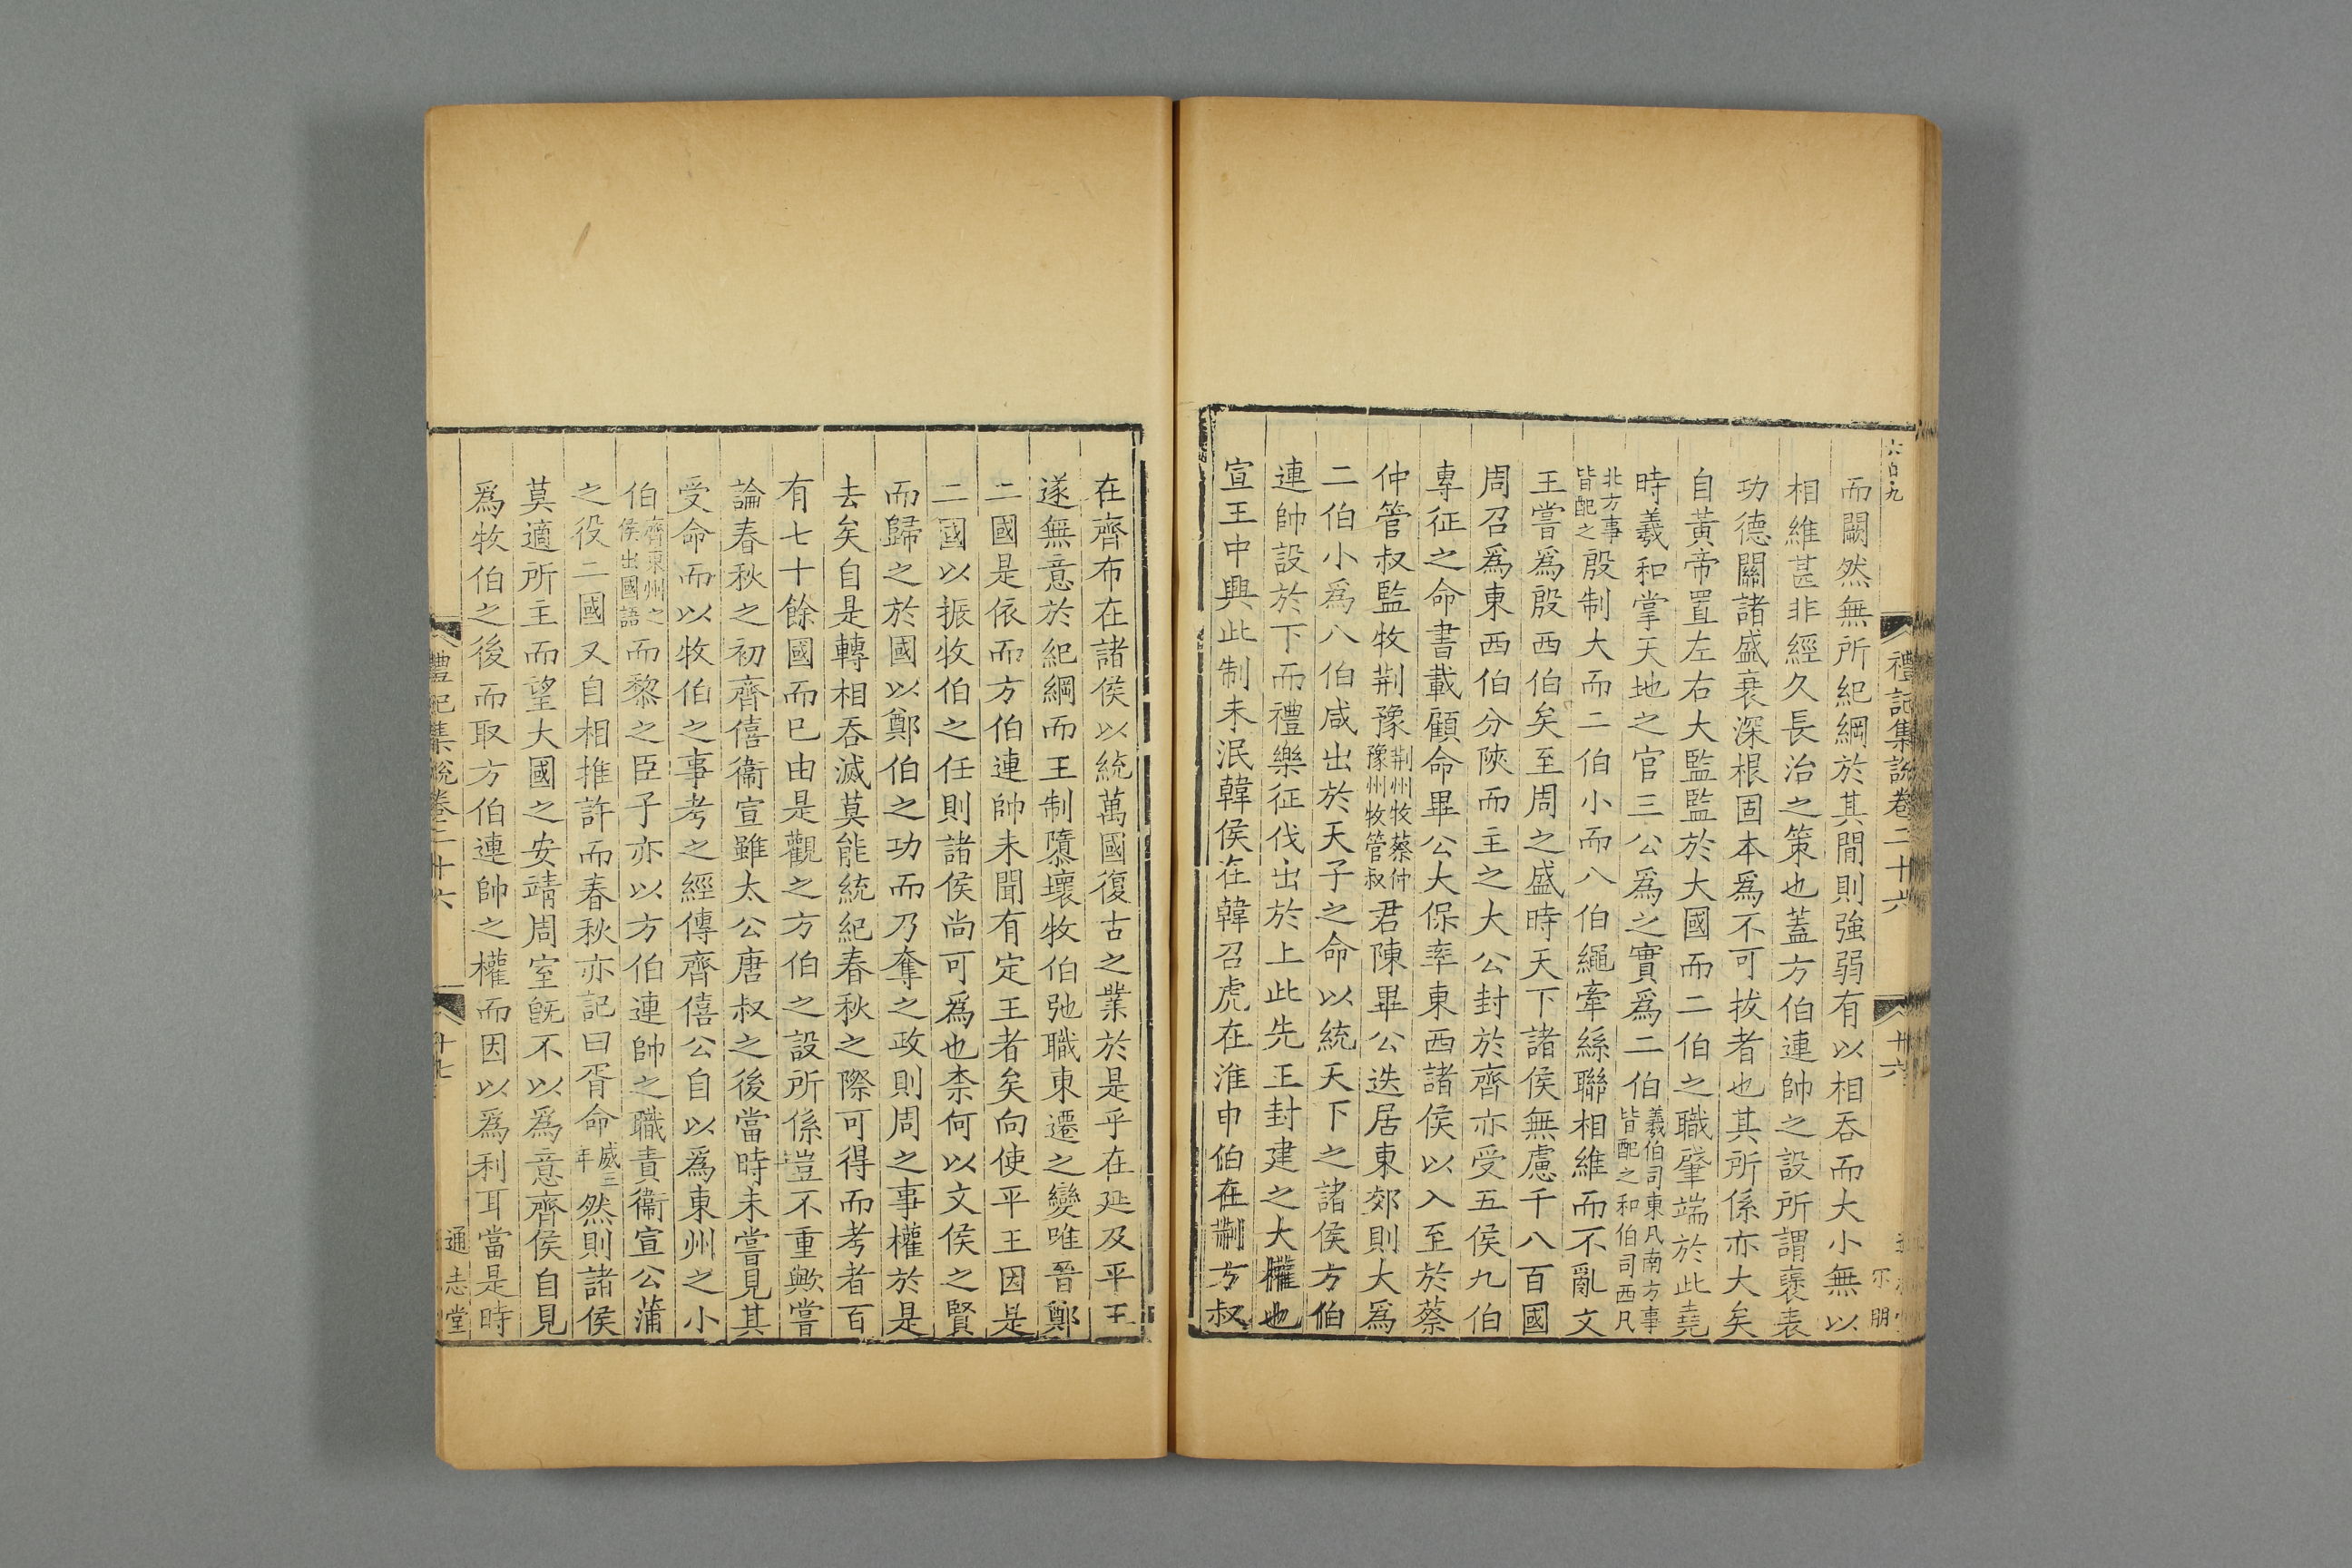 六百九
禮記集說卷二十六
廾六
而闕然無所紀綱於其閒則強弱有以相吞而大小無以
相維甚非經久長治之策也蓋方伯連帥之設所謂褒表
功德關諸盛衰深根固本爲不可拔者也其所係亦大矣
自黃帝置左右大監監於大國而二伯之職肇端於此堯
時羲和掌天地之官三公爲之實爲二伯羲伯司東凡南方事皆配之和伯司西凡
北方事皆配之殷制大而二伯小而八伯繩牽絲聯相維而不亂文
王嘗爲殷西伯矣至周之盛時天下諸侯無慮千八百國
周召爲東西伯分陝而主之大公封於齊亦受五侯九伯
專征之命書載顧命畢公大保率東西諸侯以入至於蔡
仲管叔監牧荆豫荆州牧蔡仲豫州牧管叔君陳畢公迭居東郊則大爲
二伯小爲八伯咸出於天子之命以統天下之諸侯方伯
連帥設於下而禮樂征伐出於上此先王封建之大權也
宣王中興此制未泯韓侯在韓召虎在淮申伯在謝方叔
在齊布在諸侯以統萬國復古之業於是乎在延及平王
遂無意於紀綱而王制隳壞牧伯弛職東遷之變唯晉鄭
二國是依而方伯連帥未聞有定王者矣向使平王因是
二國以振牧伯之任則諸侯尚可爲也柰何以文侯之賢
而歸之於國以鄭伯之功而乃奪之政則周之事權於是
去矣自是轉相吞滅莫能統紀春秋之際可得而考者百
有七十餘國而已由是觀之方伯之設所係豈不重歟嘗
論春秋之初齊僖衞宣雖太公唐叔之後當時未嘗見其
受命而以牧伯之事考之經傳齊僖公自以爲東州之小
伯齊東州之侯出國語而黎之臣子亦以方伯連帥之職責衞宣公蒲
之役二國又自相推許而春秋亦記曰胥命威三年然則諸侯
莫適所主而望大國之安靖周室旣不以爲意齊侯自見
爲牧伯之後而取方伯連帥之權而因以爲利耳當是時
禮記集說卷二十六
廾七
通志堂